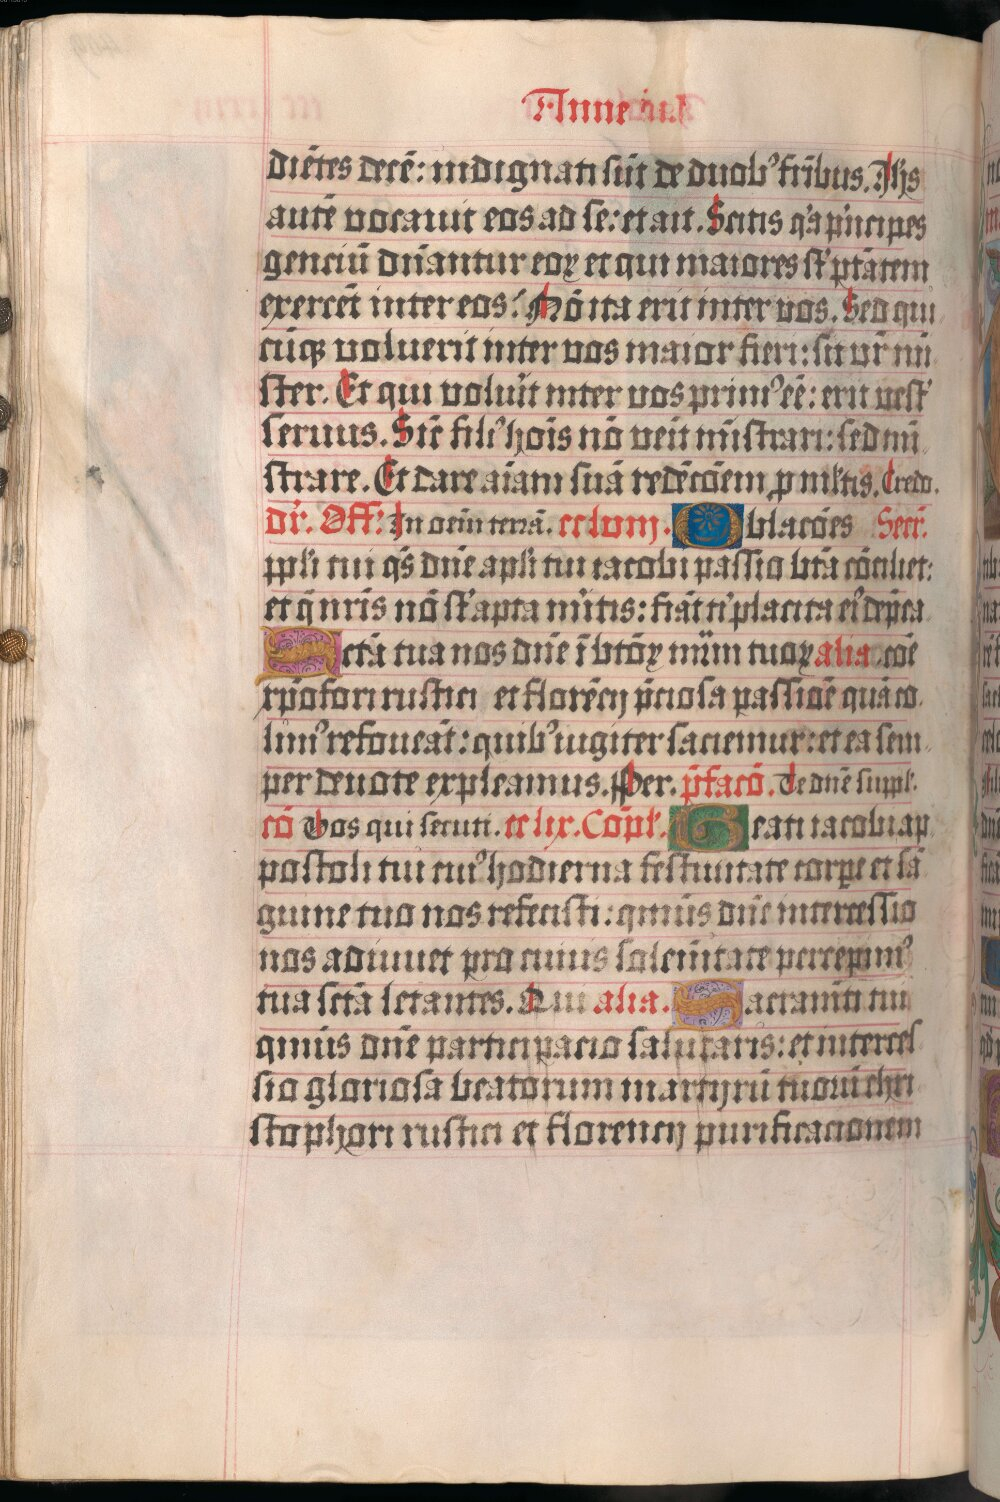 Anne
diētes decē: indignati sūt de duobꝰ fr̄ibus. Ihs
autē vocauit eos ad se: et ait. Scitis qꝛ prīncipes
genciū dn̄antur eoꝝ et qui maiores sūt ptātem
exercēt inter eos. Nō ita erit inter vos. Sed qui
cūqꝫ voluerit inter vos maior fieri: sit vr̄ mi
ster. Et qui voluīt inter vos primꝰ eē: erit vestʼ
seruus. Sic̄ filiꝰ hoīs nō venit mīstrari: sed mi
strare. Et dare aīam suā redēcōem ꝓ mltis. Credo.
dr̄. Off. In oēm terrā. cclvii. Oblacōes Secr̄.
ppl̄i tui qs̄ dn̄e apl̄i tui iacobi passio btā cōciliet:
et q̄ nr̄is nō sūt apta mītis: fiāt tⁱ placita eiꝰ dep̄ca
Sctā tua nos dn̄e ī btōꝝ mr̄m tuoꝝ alia coē
xp̄ofori rustici et florēcij p̄ciosa passiōe quā co
limꝰ refoueāt: quibꝰ iugiter saciemur: et ea sem
per deuote expleamus. Per. p̄facō. Te dn̄e suppl.
cō Vos qui secuti. cclix. Cōpl̄. Beati iacobi ap
postoli tui cuiꝰ hodierna festiuitate corpe et sā
guine tuo nos refecisti: qm̄us dn̄e intercessio
nos adiuuet pro cuius solemītate percepimꝰ
tua sctā letantes. Qui alia. Sacramēti tui
qm̄us dn̄e participacio salutaris: et interces
sio gloriosa beatorum martyrū tuoꝝ chri
stophori rustici et florencij purificacionem